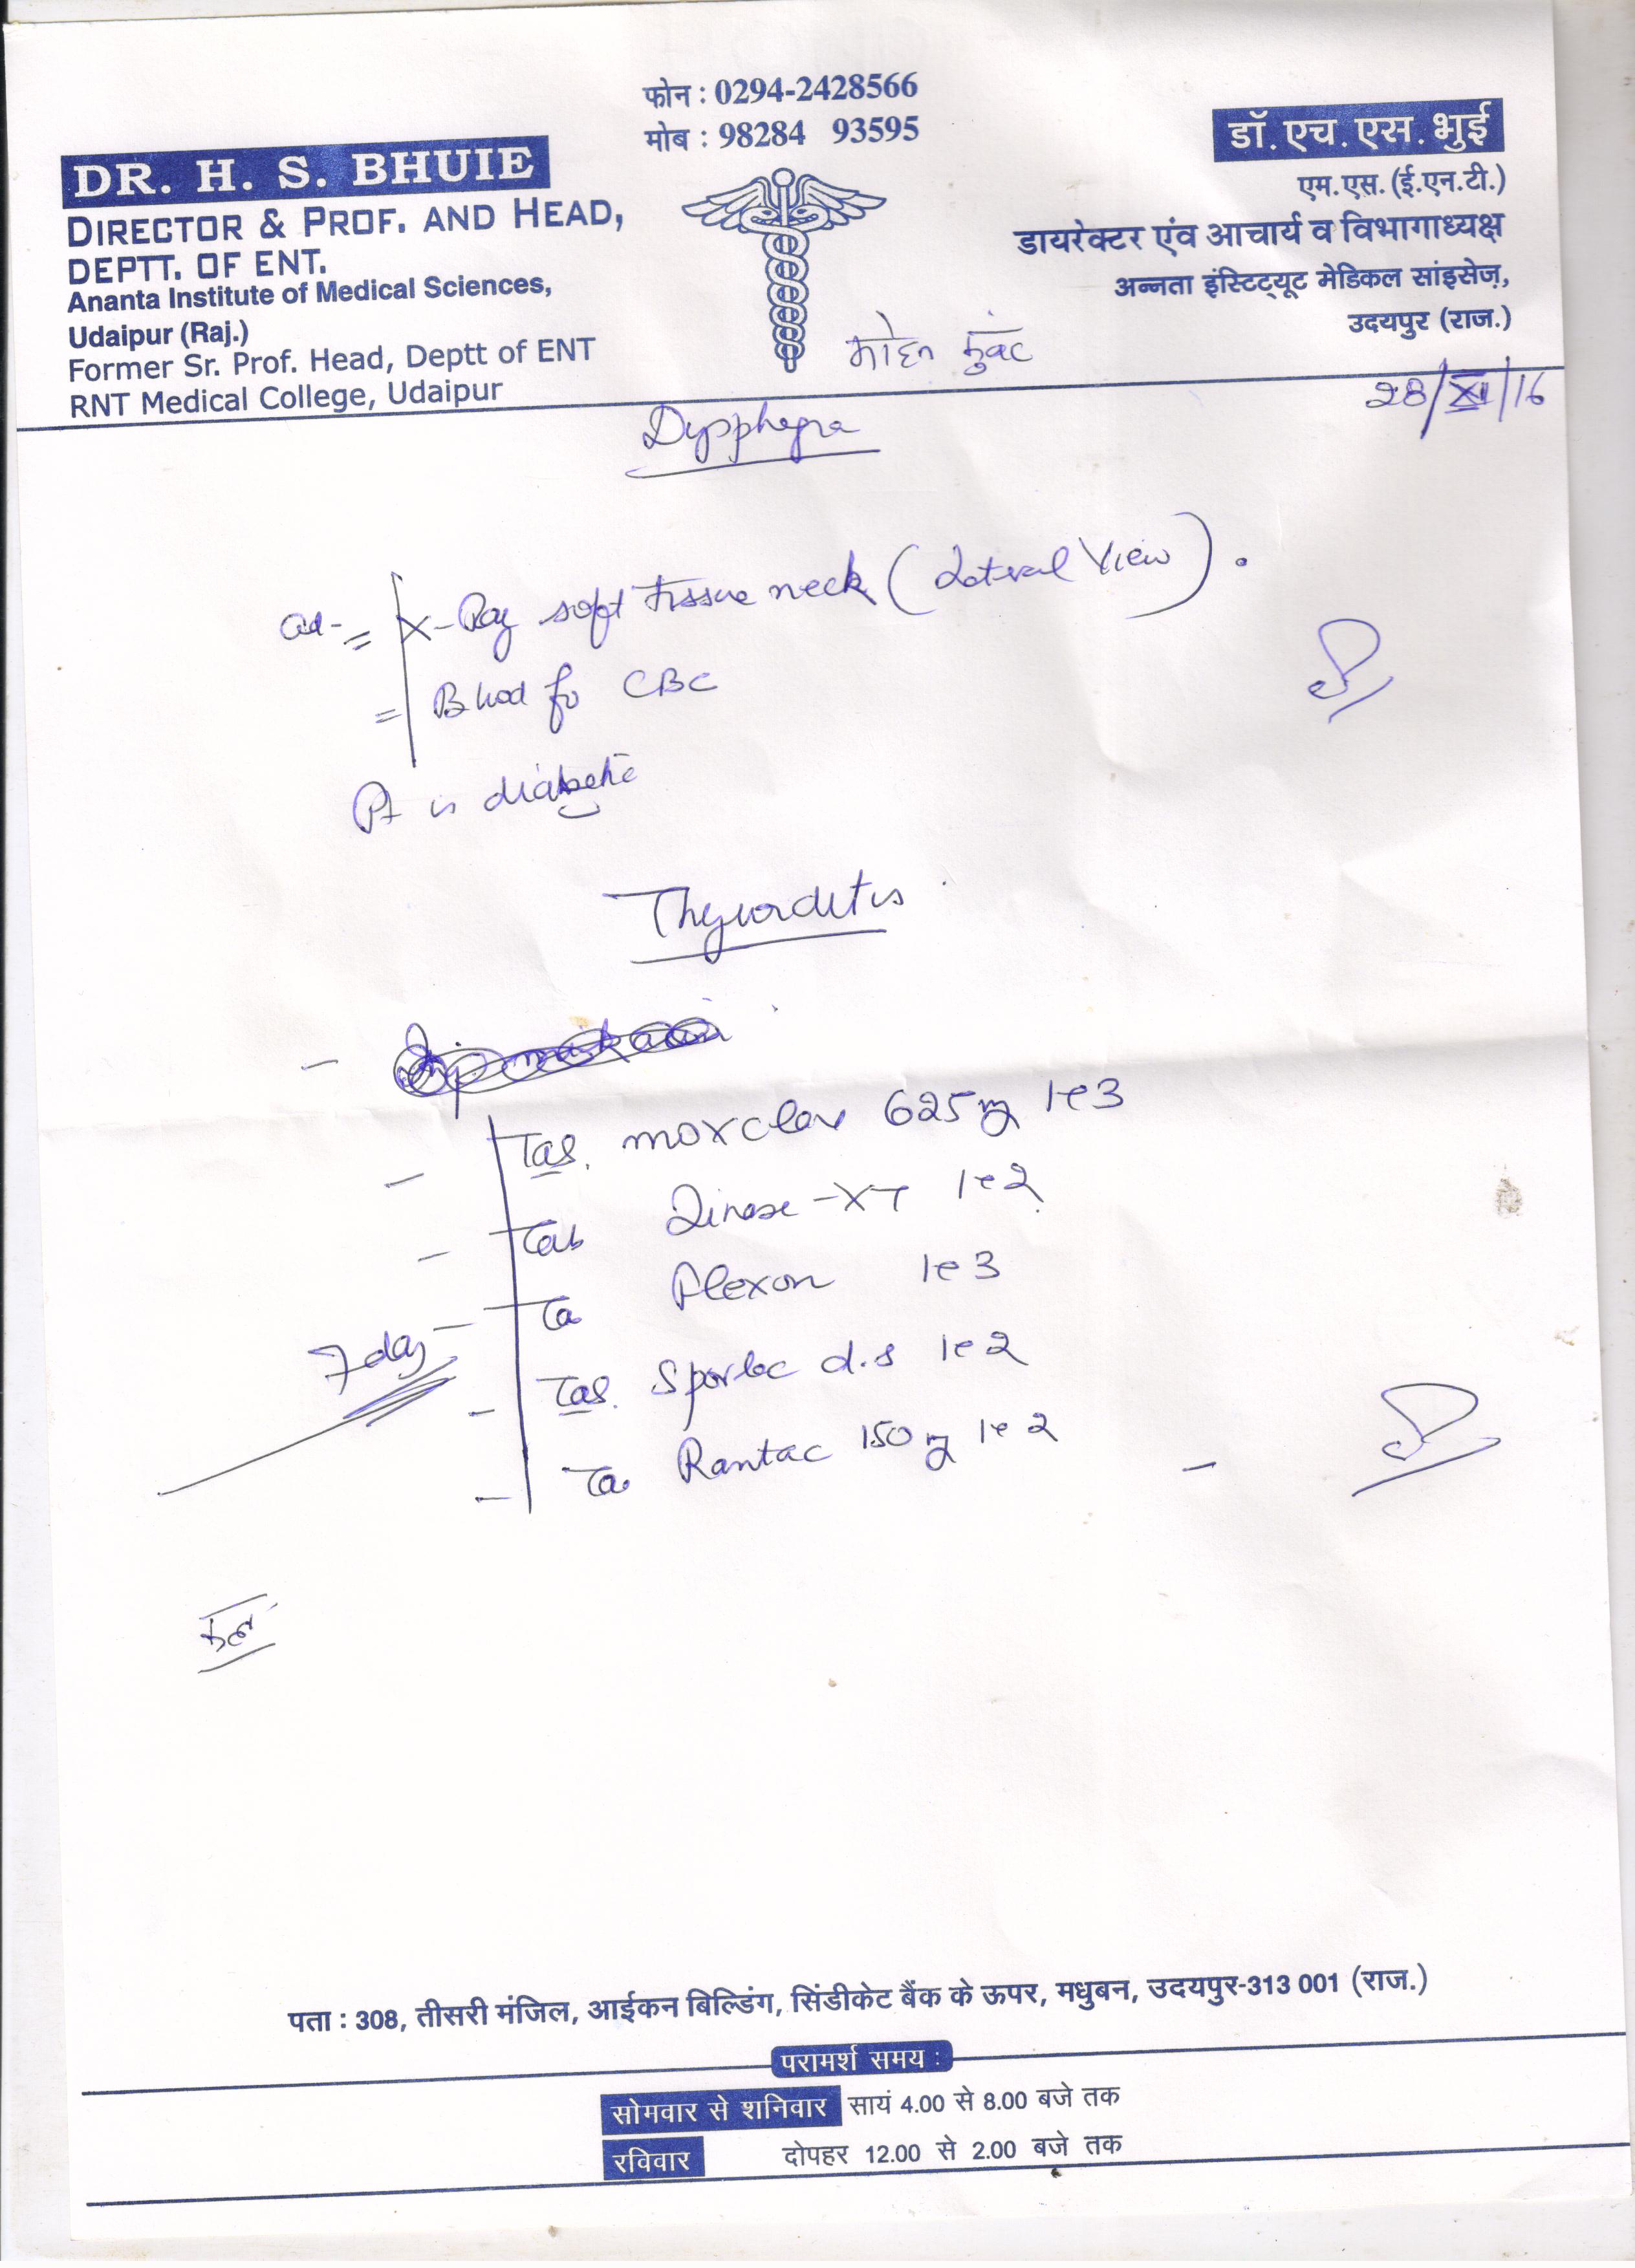 फोन : 0294-2428566
मोब : 98284 93595
DR. H. S. BHUIE
DIRECTOR & PROF. AND HEAD,
DEPTT. OF ENT.
Ananta Institute of Medical Sciences,
Udaipur (Raj.)
Former Sr. Prof. Head, Deptt of ENT
RNT Medical College, Udaipur
डॉ. एच. एस. भुई
एम.एस. (ई.एन.टी.)
डायरेक्टर एंव आचार्य व विभागाध्यक्ष
अन्नता इंस्टिट्यूट मेडिकल सांइसेज़,
उदयपुर (राज.)
मोहन कुंवर
28/XI/16
Dysphagia
X-Ray soft tissue neck (Lateral View).
= Blood for CBC
Pt is diabetic
Thyroiditis
- Tab. moxclav 625 mg 1 e 3
- Tab -XT 1 e 2
- Tab Flexon 1 e 3
- Tab. Sporlac d.s 1 e 2
- Tab Rantac 150 mg 1 e 2
7 day
पता : 308, तीसरी मंजिल, आईकन बिल्डिंग, सिंडीकेट बैंक के ऊपर, मधुबन, उदयपुर-313 001 (राज.)
परामर्श समय :
सोमवार से शनिवार सायं 4.00 से 8.00 बजे तक
रविवार दोपहर 12.00 से 2.00 बजे तक